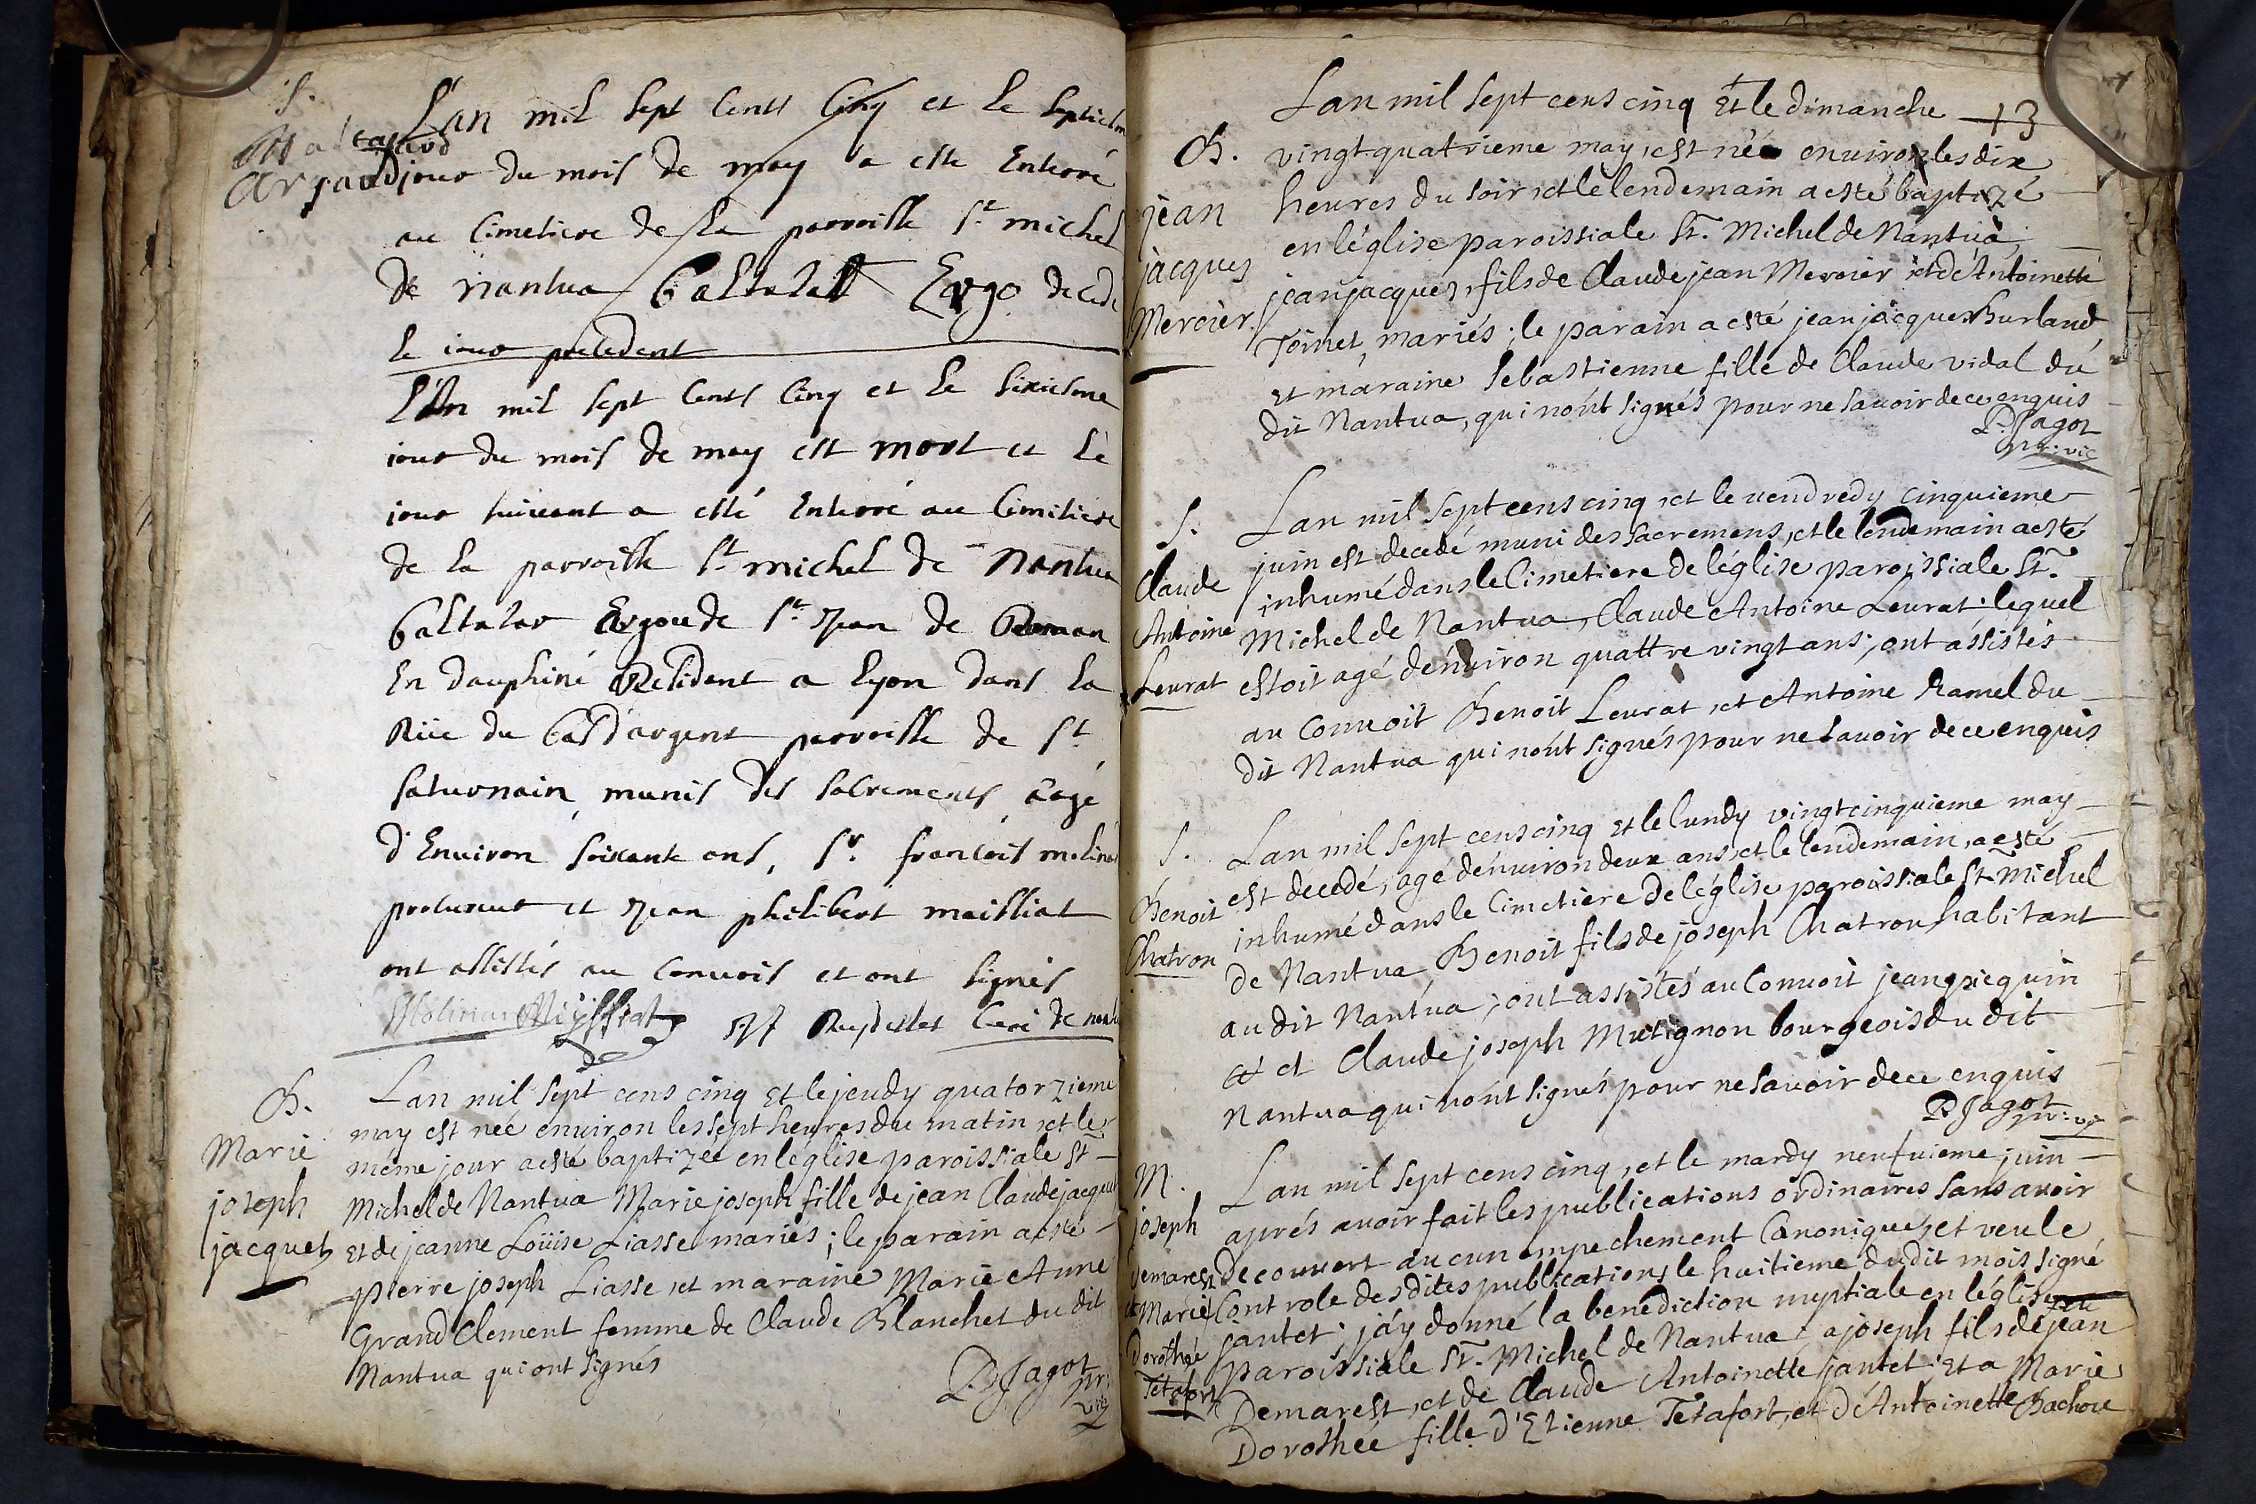 S.
Baltazard
Argaud
L'an mil sept Cents Cinq et le Septiesm
jour du mois de may a este Enterré
au Cimetiere de la parroisse St michel
de nantua Baltazatt Ergo decedé
le iour precedent
L'An mil sept Cents Cinq et le sixiesme
iour du mois de may est mort et le
iour suivant a esté Enterré au Cimitiere
de la parroisse St michel de Nantua
Baltazar Argou de St Jean de
En dauphiné Resident a Lyon dans la
Rüe du Bast d'argent parroisse de St
Saturnain munis des sacrements aagé
d'Environ soixante ans, Sr. françois molina
procureur et Jean philibert maissiat
ont assistés au Convois et ont signés
Molinar Meyssiat Curé de nantu
B.
Marie
joseph
jacquet
Lan mil sept cens cinq Et le jeudy quatorzieme
may est neé environ les sept heures du matin et le
méme jour a esté baptizeé en léglise paroissiale St
Michel de Nantua Marie joseph fille de jean Claude jacquet
Et de jeanne Loüise Liasse mariés; le parain a esté
pierre joseph Liasse et maraine Marie Anne
Grand Clement femme de Claude Blanchet du dit
Nantua qui ont signés
P. Jagot
pr.
vic
+ 13
B.
jean
jacques
Mercier.
Lan mil sept cens cinq Et le dimanche
vingt quatrieme may, est né environ les dix
heures du soir et le lendemain a esté baptizé
en léglise paroissiale St. Michel de Nantua
jean jacques, fils de Claude jean Mercier et de Antoinette
Toinet, mariés; le parain a esté jean jacques Burland
et maraine Sebastienne fille de Claude vidal du
dit Nantua, qui nont signés pour ne savoir de ce enquis
P. Jagot
pr. vic
S.
Claude
Antoine
Leurat
Lan mil sept cens cinq et le vendredy cinquieme
juin est decedé muni des sacremens, et le lendemain a esté
inhumé dans le Cimetiere de léglise paroissiale St.
Michel de Nantua, Claude Antoine Leurat: lequel
estoit agé dénviron quattre vingt ans; ont assistés
au Convoit Benoit Leurat et Antoine Ramel du
dit Nantua qui nont signés pour ne savoir de ce enquis
S.
Benoit
Chatron
Lan mil sept cens cinq et le lundy vingt cinquieme may
est decedé, agé dénviron deux ans, et le lendemain, a esté
inhumé dans le Cimetiere de léglise paroissiale St Michel
de Nantua Benoit fils de joseph Chatron habitant
au dit Nantua; ont assistés au Convoit jean picquin
et Claude joseph Mutignon bourgeois du dit
Nantua qui nont signés pour ne savoir de ce enquis
P. Jagot
pr. vic
M.
joseph
Demarest
et Marie
Dorothée
Tetafort
Lan mil sept cens cinq, et le mardy neufuieme juin
aprés avoir fait les publications ordinaires sans avoir
decouvert aucun empechement Canonique, et veu le
Controle des dites publications le huitieme du dit mois signé
jantet; j'áy donné la benediction nuptiale en léglise
paroissiale St. Michel de Nantua a joseph fils de jean
Demarest, et de Claude Antoinette jantet: Et a Marie
Dorothée fille d'Etienne Tetafort, et d'Antoinette Bachou